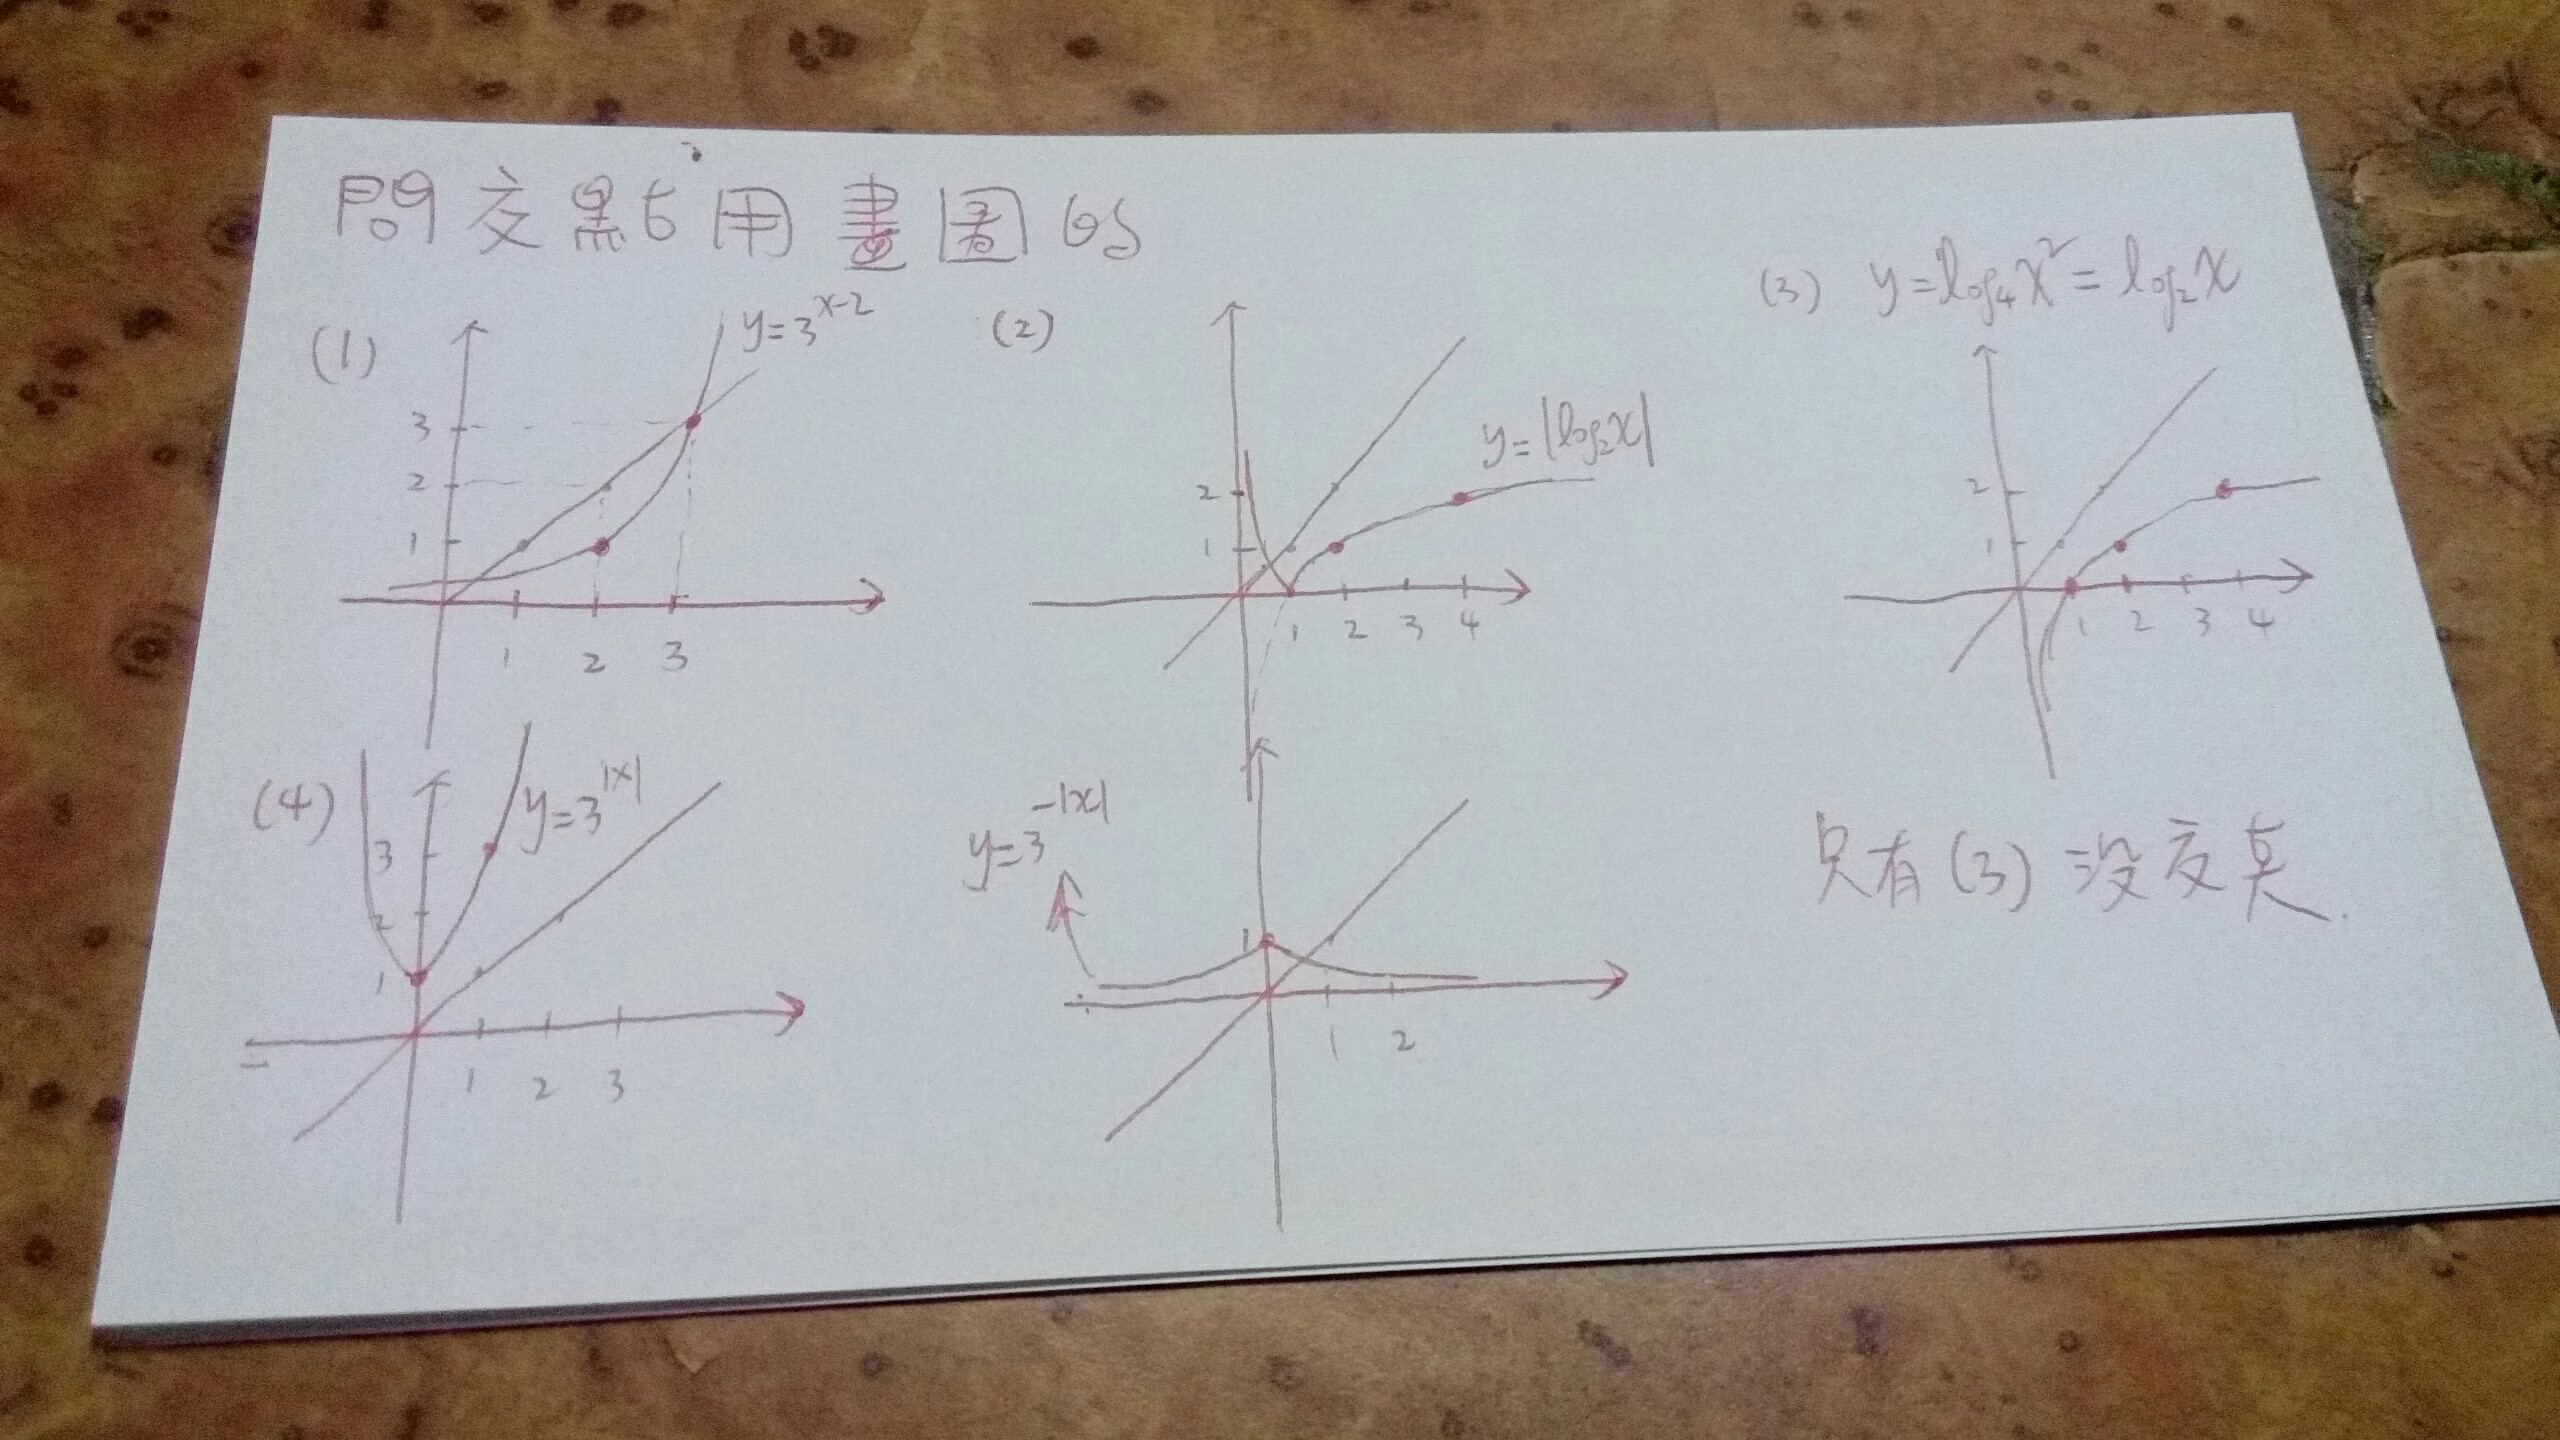 問交點 用畫圖的
(1)
y=3^{x-2}
3
2
1
1 2 3
(2)
y=|log₂x|
2
1
1 2 3 4
(3) y=log₄x²=log₂x
2
1
1 2 3 4
(4)
y=3^{|x|}
3
2
1
1 2 3
y=3^{-|x|}
1
1 2
只有(3)沒交點.